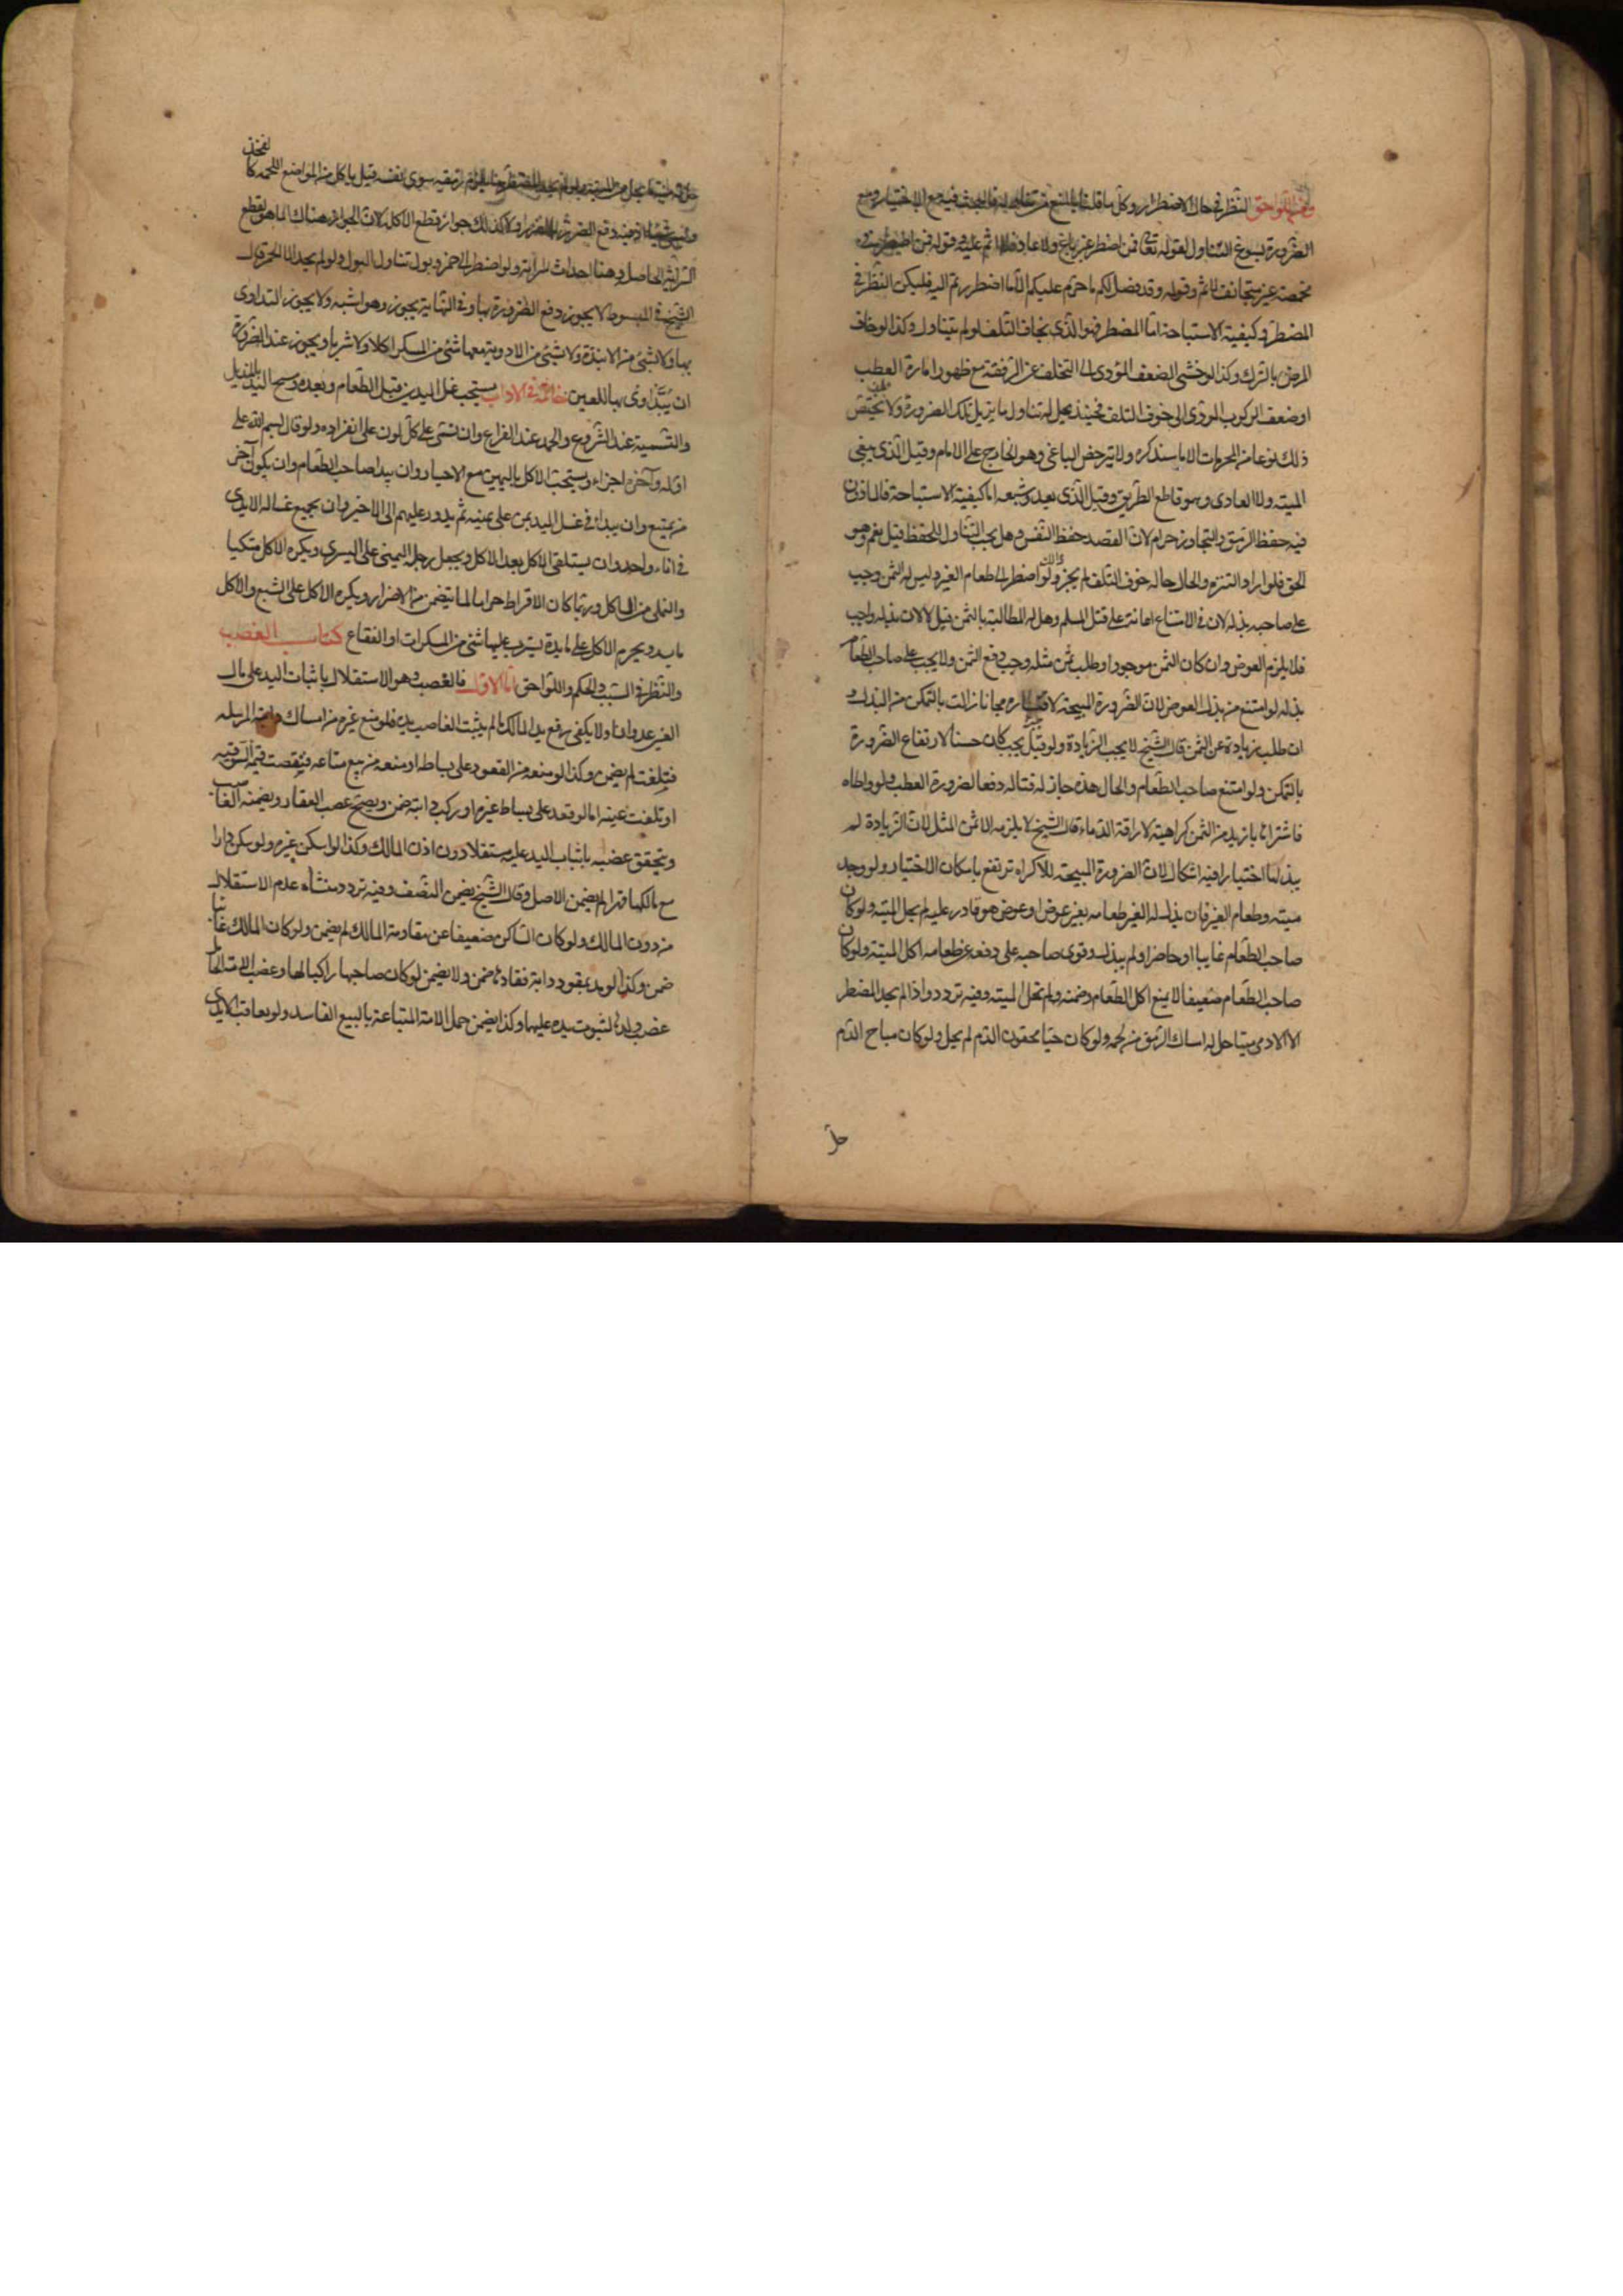 ومن اللواحق النظر في حال الاضطرار وكل ما قلناه بالمنع من تناوله فالبحث فيه مع الاختيار ومع
الضرورة يسوغ التناول لقوله تعالى فمن اضطر غير باغ ولا عاد فلا اثم عليه وقوله فمن اضطر في
مخمصة غير متجانف لاثم وقوله وقد فصل لكم ما حرم عليكم الا ما اضطررتم اليه فليكن النظر في
المضطر وكيفية الاستباحة اما المضطر فهو الذي يخاف التلف لو لم يتناول وكذا لو خاف
المرض بالترك وكذا لو خشي الضعف المؤدي الى التخلف عن الرفقة مع ظهور امارة العطب
او ضعف الركوب المؤدي الى خوف التلف فحينئذ يحل له تناول ما يزيل تلك الضرورة ولا يختص
ذلك نوعا من المحرمات الا ما سنذكره ولا يترخص الباغي وهو الخارج على الامام وقيل الذي يبغي
الميته ولا العادي وهو قاطع الطريق وقيل الذي يعدو شبعه اما كيفية الاستباحة فالماذون
فيه حفظ الرمق والتجاوز حرام لان القصد حفظ النفس وهل يجب التناول للحفظ قيل نعم وهو
الحق فلو اراد التنزه والحال حاله خوف التلف لم يجز ولو اضطر الى طعام الغير وليس له الثمن وجب
على صاحبه بذله لان في الامتناع اعانة على قتل المسلم وهل له المطالبة بالثمن قيل لا لان بذله واجب
فلا يلزم العوض وان كان الثمن موجودا وطلب ثمن مثله وجب دفع الثمن ولا يجب على صاحب الطعام
بذله لو امتنع من بذل العوض لان الضرورة المبيحة لا مجانا زالت بالتمكن من البذل و
ان طلب زيادة عن الثمن قال الشيخ لا يجب الزيادة ولو قيل يجب كان حسنا لارتفاع الضرورة
بالتمكن ولو امتنع صاحب الطعام والحال هذه جاز له قتاله دفعا لضرورة العطب ولو واطاه
فاشتراه بازيد من الثمن كراهية لاراقة الدماء قال الشيخ لا يلزمه الا ثمن المثل لان الزيادة لم
يبذلها اختيارا وفيه اشكال لان الضرورة المبيحة للاكراه ترتفع بامكان الاختيار ولو وجد
ميته وطعام الغير فان بذل له الغير طعامه بغير عوض او عوض هو قادر عليه لم يحل الميته ولو كان
صاحب الطعام غايبا او حاضرا ولم يبذل وقوي صاحبه على دفعه عن طعامه اكل الميته ولو كان
صاحب الطعام ضعيفا لا يمنع اكل الطعام وضمنه ولم تحل الميته وفيه تردد واذا لم يجد المضطر
الا الادمي ميتا حل له امساك الرمق من لحمه ولو كان حيا محقون الدم لم يحل ولو كان مباح الدم
حل
حل له منه ما يحل من الميتة ولو لم يجد المضطر ما يمسك رمقه سوى نفسه قيل ياكل من المواضع اللحمه كالفخذ
وليس شيئا اذ فيه دفع الضرر بالضرر ولا كذلك جواز قطع الآكله لان الجواز هناك انما هو لقطع
السراية الحاصله وهنا احداث لسراية ولو اضطر الى خمر وبول تناول البول ولو لم يجد الا الخمر قال
الشيخ في المبسوط لا يجوز دفع الضرورة بها وفي النهاية يجوز وهو اشبه ولا يجوز التداوي
بها ولا بشيء من الانبذة ولا بشيء من الادوية معها شيء من المسكر اكلا ولا شربا ويجوز عند الضرورة
ان يتداوى بها للعين خاتمة في الاداب يستحب غسل اليدين قبل الطعام وبعده ومسح اليد بالمنديل
والتسمية عند الشروع والحمد عند الفراغ وان تسمى على كل لون على انفراده ولو قال بسم الله على
اوله وآخره اجزاء ويستحب الاكل باليمين مع الاختيار وان يبدا صاحب الطعام وان يكون آخر
من يمتنع وان يبدأ في غسل اليد بمن على يمينه ثم يدور عليهم الى الاخير وان يجمع غساله الايدي
في اناء واحد وان يستلقي الاكل بعد الاكل ويجعل رجله اليمنى على اليسرى ويكره الاكل متكيا
والتملي من الماكل وربما كان الافراط حراما لما يتضمن من الاضرار ويكره الاكل على الشبع والاكل
باليد ويحرم الاكل على مايدة يشرب عليها شيء من المسكرات او الفقاع كتاب الغصب
والنظر في السبب والحكم واللواحق اما الاول فالغصب هو الاستقلال باثبات اليد على مال
الغير عدوانا ولا يكفي رفع يد المالك ما لم يثبت الغاصب يده فلو منع غيره من امساك دابته المرسله
فتلفت لم يضمن وكذا لو منعه من القعود على بساطه او منعه من بيع متاعه فنقصت قيمته السوقيه
او تلفت عينه اما لو قعد على بساط غيره او ركب دابته ضمن ويصح غصب العقار ويضمنه الغاصب
ويتحقق غصبه باثبات اليد عليه مستقلا دون اذن المالك وكذا لو اسكن غيره ولو سكن دارا
مع مالكها قهرا لم يضمن الاصل وقال الشيخ يضمن النصف وفيه تردد منشاه عدم الاستقلال
من دون المالك ولو كان الساكن ضعيفا عن مقاومة المالك لم يضمن ولو كان المالك غائبا
ضمن وكذا لو مد بمقود دابة فقادها ضمن ولا يضمن لو كان صاحبها راكبا لها وغصب الامة الحامل
غصب ولدها لثبوت يده عليها وكذا يضمن حمل الامة المبتاعة بالبيع الفاسد ولو تعاقب الايدي